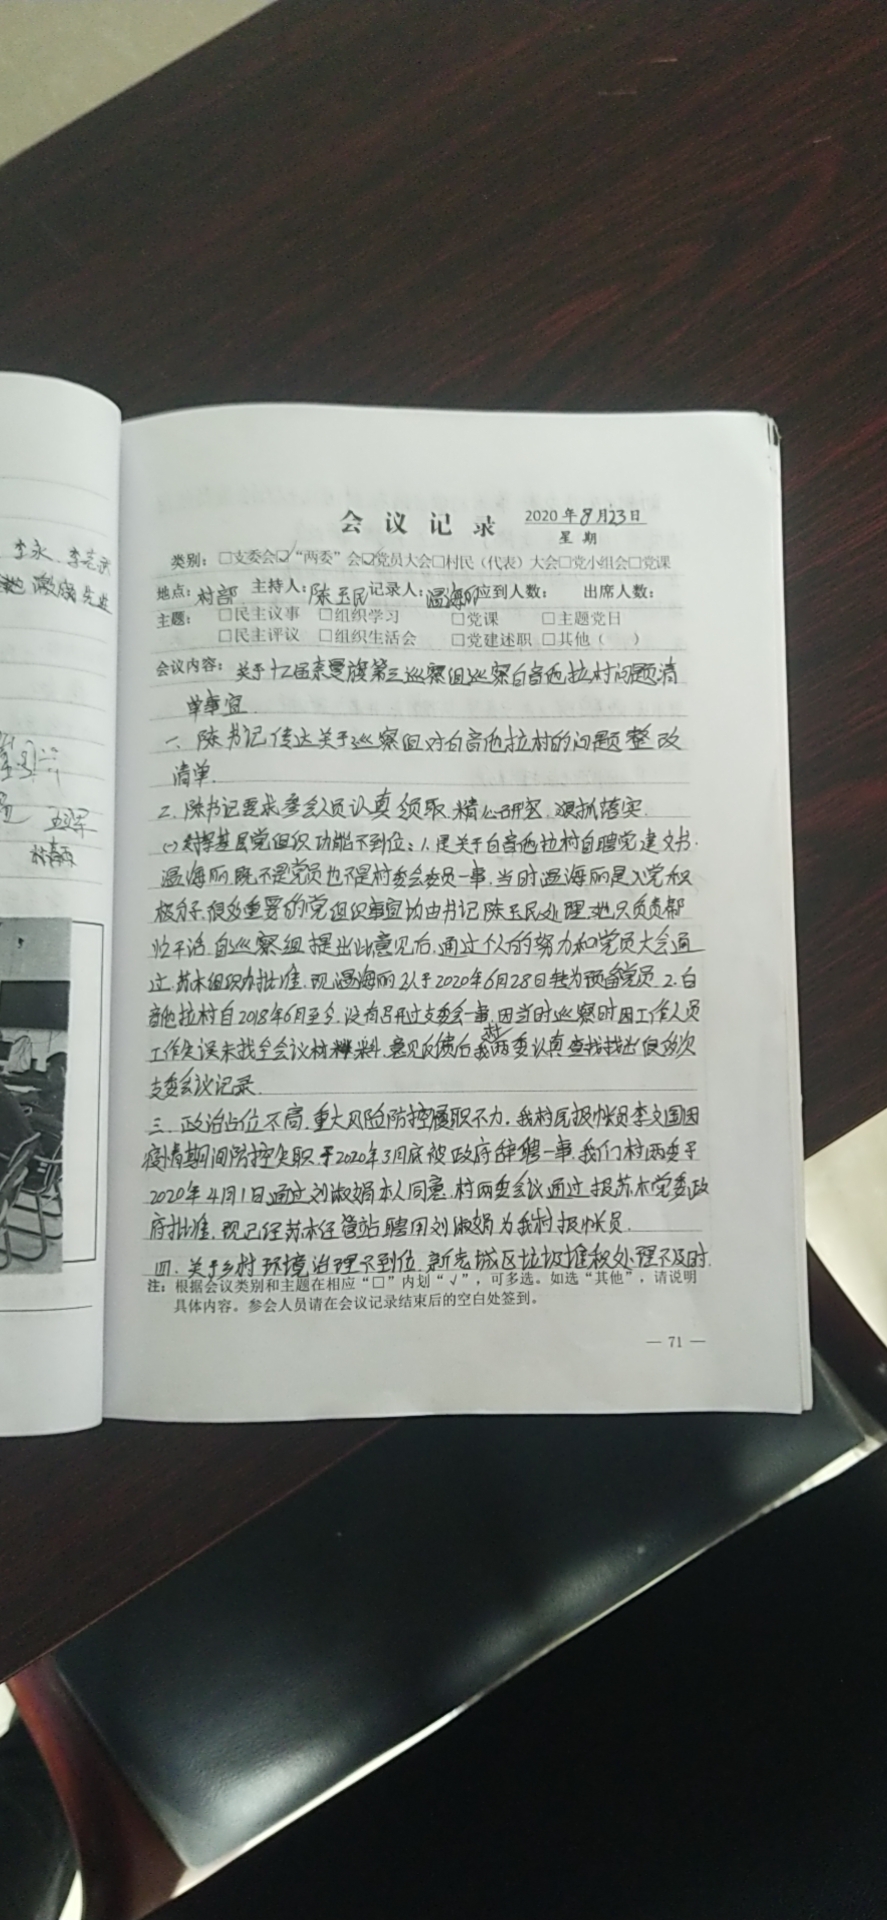 李永.李志武
会议记录
2020年8月23日
星期
类别：□支委会☑“两委”会☑党员大会□村民（代表）大会□党小组会□党课
地点：村部 主持人：陈玉民 记录人：温海丽 应到人数： 出席人数：
主题：□民主议事 □组织学习 □党课 □主题党日
□民主评议 □组织生活会 □党建述职 □其他（ ）
会议内容：关于十五届奈曼旗第三巡察组巡察白音他拉村问题清
单事宜.
一、陈书记传达关于巡察组对白音他拉村的问题整改
清单.
2.陈书记要求参会人员认真领取.精心研究.狠抓落实.
(一)发挥基层党组织功能不到位：1.是关于白音他拉村自聘党建文书.
温海丽既不是党员也不是村委会委员一事.当时温海丽是入党积
极分子.很多重要的党组织事宜均由书记陈玉民处理.她只负责帮
忙干活.自巡察组提出此意见后.通过个人的努力和党员大会通
过.苏木组织办批准.现温海丽以于2020年6月28日转为预备党员.2.白
音他拉村自2018年6月至今.没有召开过支委会一事.因当时巡察时因工作人员
工作失误未找全会议材料.意见反馈后我村两委认真查找找出很多次
支委会议记录.
三.政治占位不高.重大风险防控履职不力.我村原报帐员李文国因
疫情期间防控失职.于2020年3月底被政府辞聘一事.我们村两委于
2020年4月1日通过刘淑娟本人同意.村两委会议通过报苏木党委政
府批准.现已经苏木经管站聘用刘淑娟为我村报帐员.
四.关于乡村环境治理不到位.新老城区垃圾堆积处理不及时.
注：根据会议类别和主题在相应“□”内划“√”，可多选。如选“其他”，请说明
具体内容。参会人员请在会议记录结束后的空白处签到。
— 71 —